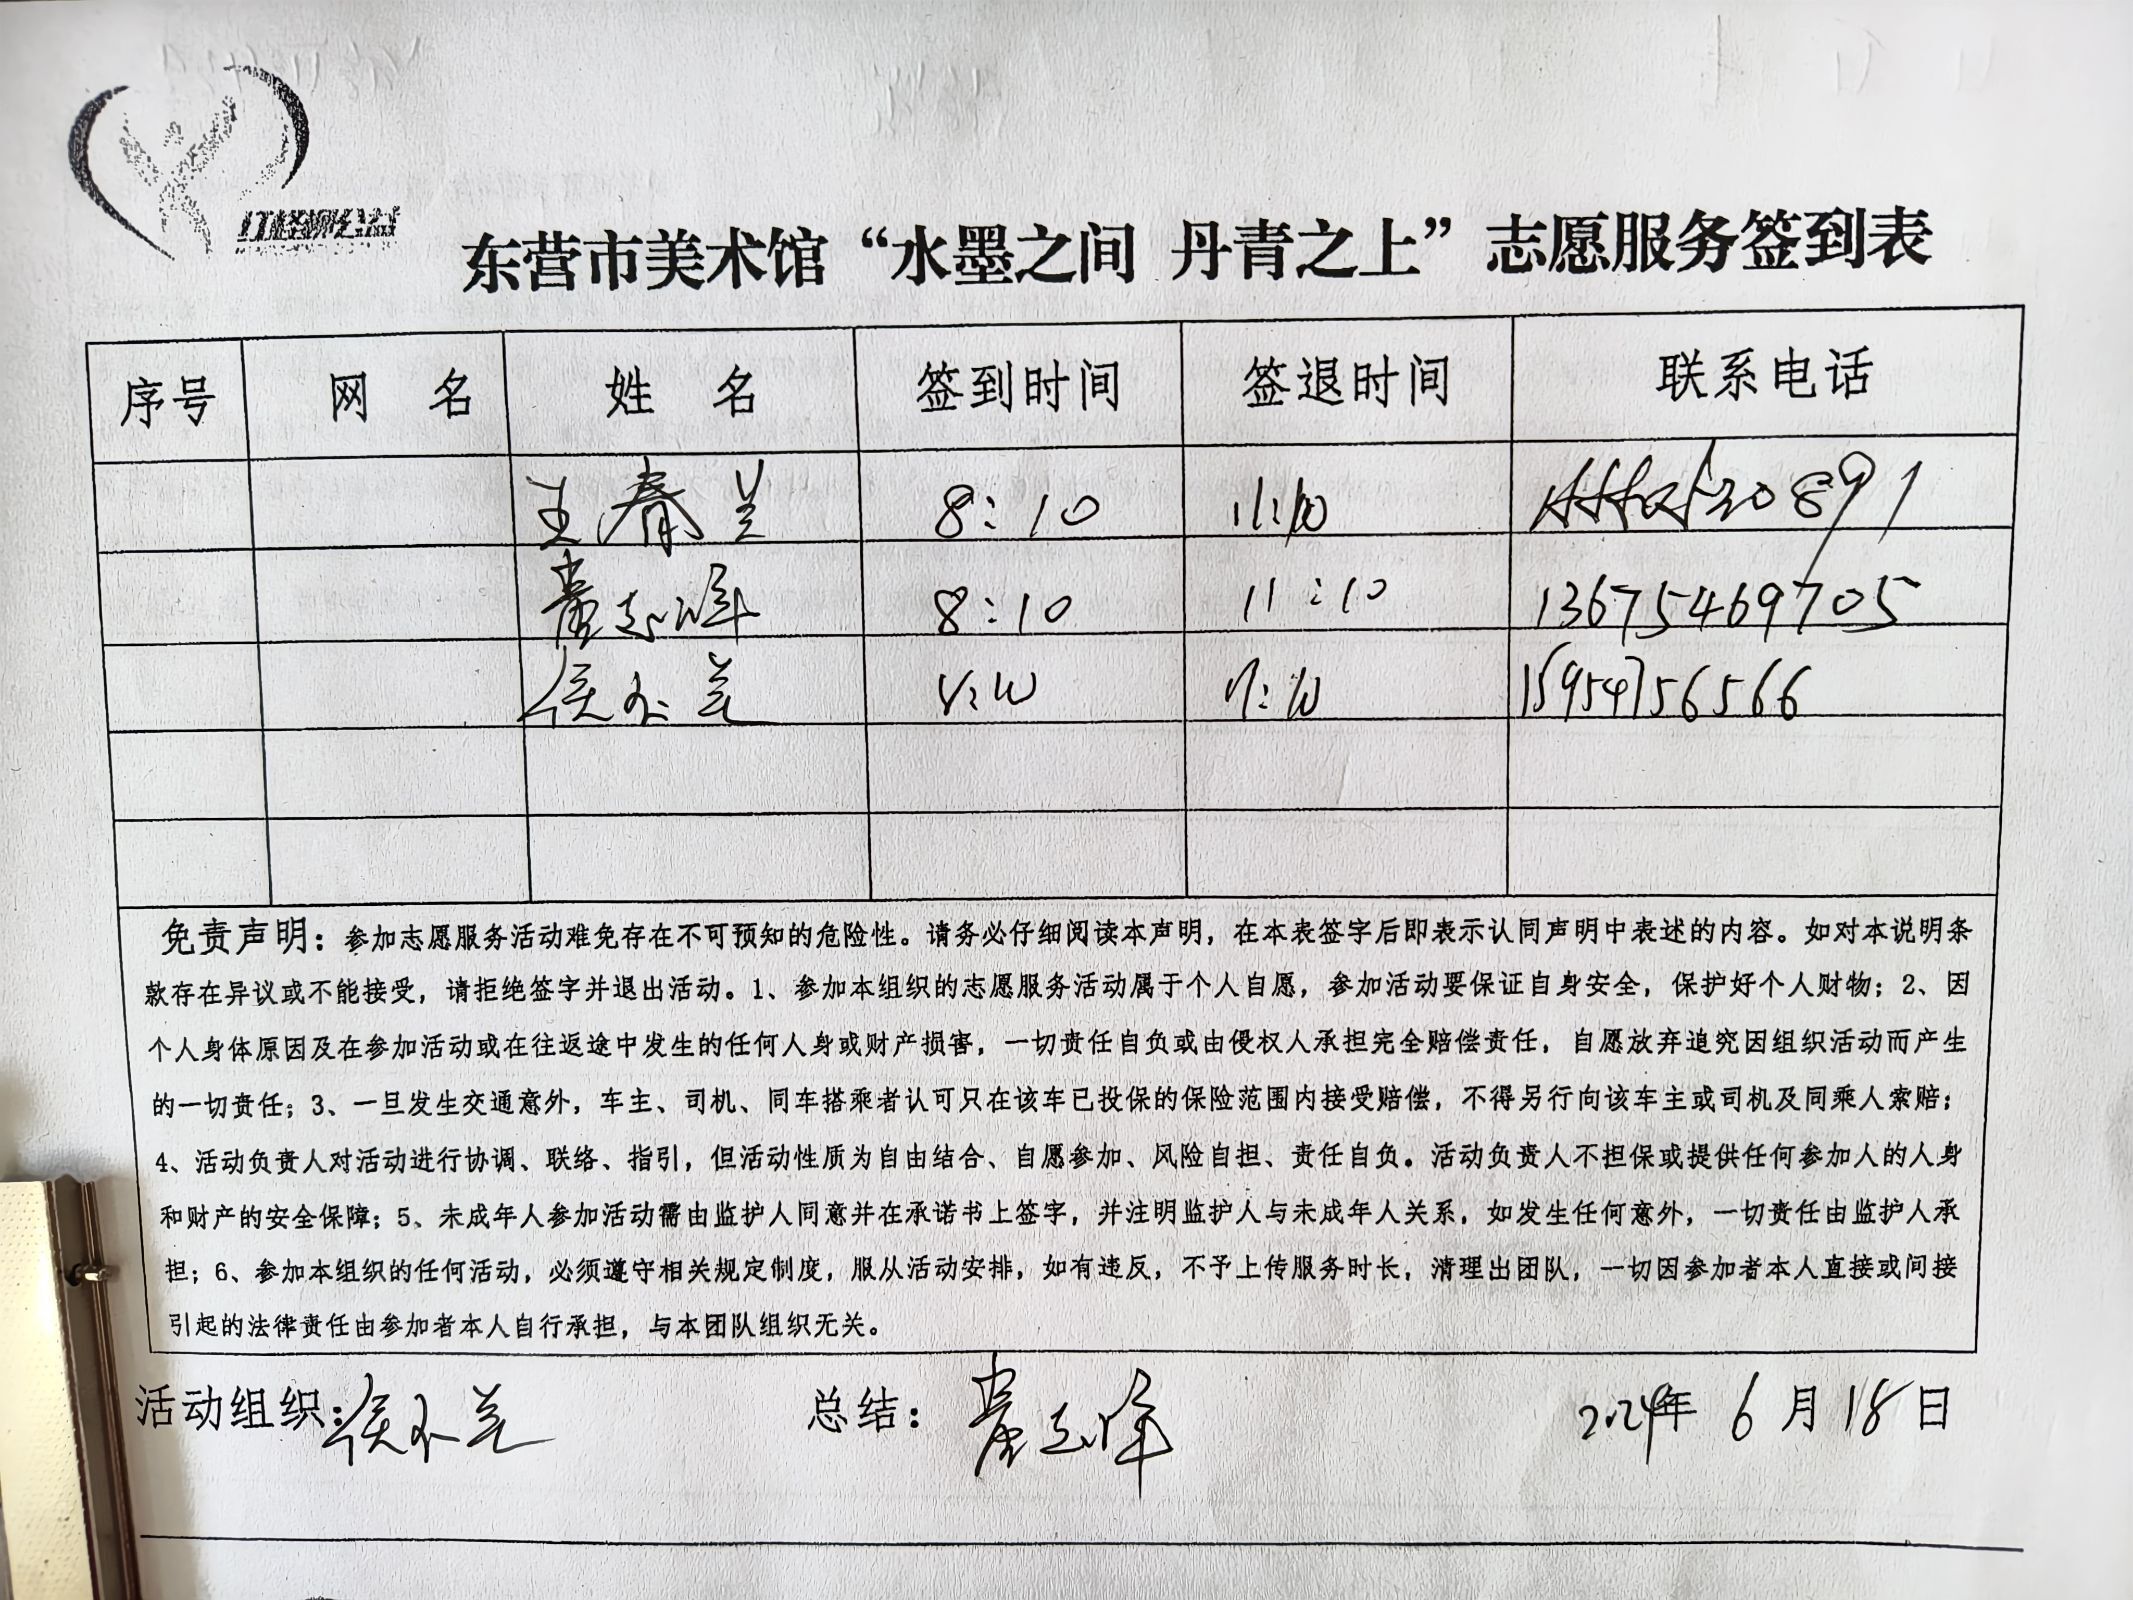 红格柳公益
东营市美术馆“水墨之间 丹青之上”志愿服务签到表
序号 网 名 姓 名 签到时间 签退时间 联系电话
王春兰 8:10 11:10 20891
董志峰 8:10 11:10 13675469705
侯小兰 8:10 11:10 15954756566
免责声明：参加志愿服务活动难免存在不可预知的危险性。请务必仔细阅读本声明，在本表签字后即表示认同声明中表述的内容。如对本说明条
款存在异议或不能接受，请拒绝签字并退出活动。1、参加本组织的志愿服务活动属于个人自愿，参加活动要保证自身安全，保护好个人财物；2、因
个人身体原因及在参加活动或在往返途中发生的任何人身或财产损害，一切责任自负或由侵权人承担完全赔偿责任，自愿放弃追究因组织活动而产生
的一切责任；3、一旦发生交通意外，车主、司机、同车搭乘者认可只在该车已投保的保险范围内接受赔偿，不得另行向该车主或司机及同乘人索赔；
4、活动负责人对活动进行协调、联络、指引，但活动性质为自由结合、自愿参加、风险自担、责任自负。活动负责人不担保或提供任何参加人的人身
和财产的安全保障；5、未成年人参加活动需由监护人同意并在承诺书上签字，并注明监护人与未成年人关系，如发生任何意外，一切责任由监护人承
担；6、参加本组织的任何活动，必须遵守相关规定制度，服从活动安排，如有违反，不予上传服务时长，清理出团队，一切因参加者本人直接或间接
引起的法律责任由参加者本人自行承担，与本团队组织无关。
活动组织：侯小兰 总结：董志峰 2024年 6 月 18 日